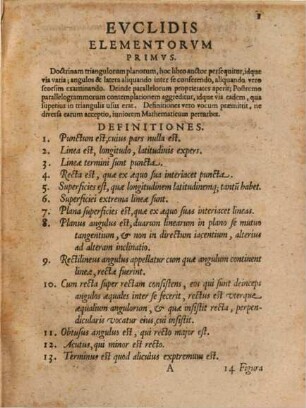 1
EVCLIDIS
ELEMENTORVM
PRIMVS.
Doctrinam triangulorum planorum, hoc libro auctor persequitur, idque
via varia; angulos & latera aliquando inter se conferendo, aliquando vero
seorsim examinando. Deinde parallelorum proprietates aperit; Postremo
parallelogrammorum contemplationem aggreditur, idque via eadem, qua
superius in triangulis usus erat. Definitiones vero vocum præmittit, ne
diversa earum acceptio, iuniorem Mathematicum perturbet.
DEFINITIONES.
1. Punctum est, cuius pars nulla est.
2. Linea est, longitudo, latitudinis expers.
3. Lineæ termini sunt puncta.
4. Recta est, quæ ex æquo sua interiacet puncta.
5. Superficies est, quæ longitudinem latitudinemq; tantū habet.
6. Superficiei extrema lineæ sunt.
7. Plana superficies est, quæ ex æquo suas interiacet lineas.
8. Planus angulus est, duarum linearum in plano se mutuo
tangentium, & non in directum iacentium, alterius
ad alteram inclinatio.
9. Rectilineus angulus appellatur cum quæ angulum continent
lineæ, rectæ fuerint.
10. Cum recta super rectam consistens, eos qui sunt deinceps
angulos æquales inter se fecerit, rectus est uterque
æqualium angulorum, & quæ insistit recta, perpen-
dicularis vocatur eius, cui insistit.
11. Obtusus angulus est, qui recto major est.
12. Acutus, qui minor est recto.
13. Terminus est quod alicuius exptremum est.
A
14. Figura